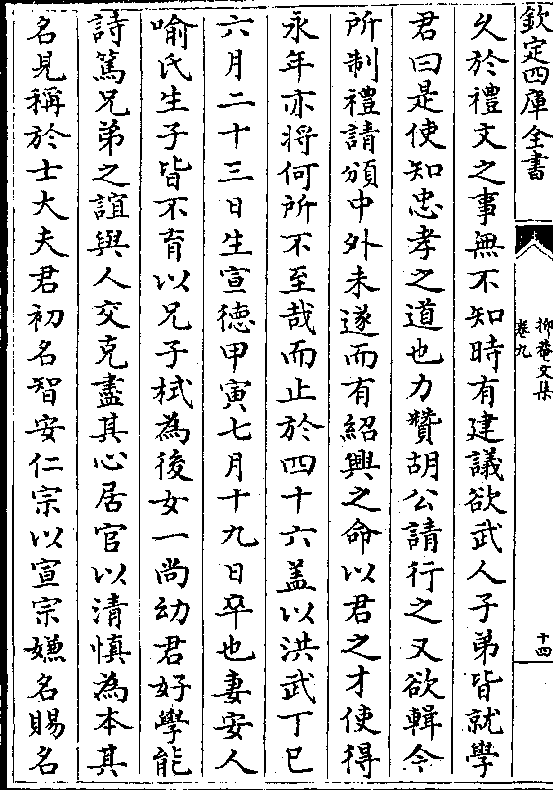 欽定四庫全書
抑菴文集
卷九
十四
久於禮文之事無不知時有建議欲武人子弟皆就學
君曰是使知忠孝之道也力贊胡公請行之又欲輯今
所制禮請頒中外未遂而有紹興之命以君之才使得
永年亦将何所不至哉而止於四十六盖以洪武丁巳
六月二十三日生宣德甲寅七月十九日卒也妻安人
喻氏生子皆不育以兄子栻為後女一尚幼君好學能
詩篤兄弟之誼與人交克盡其心居官以清慎為本其
名見稱於士大夫君初名智安仁宗以宣宗嫌名賜名